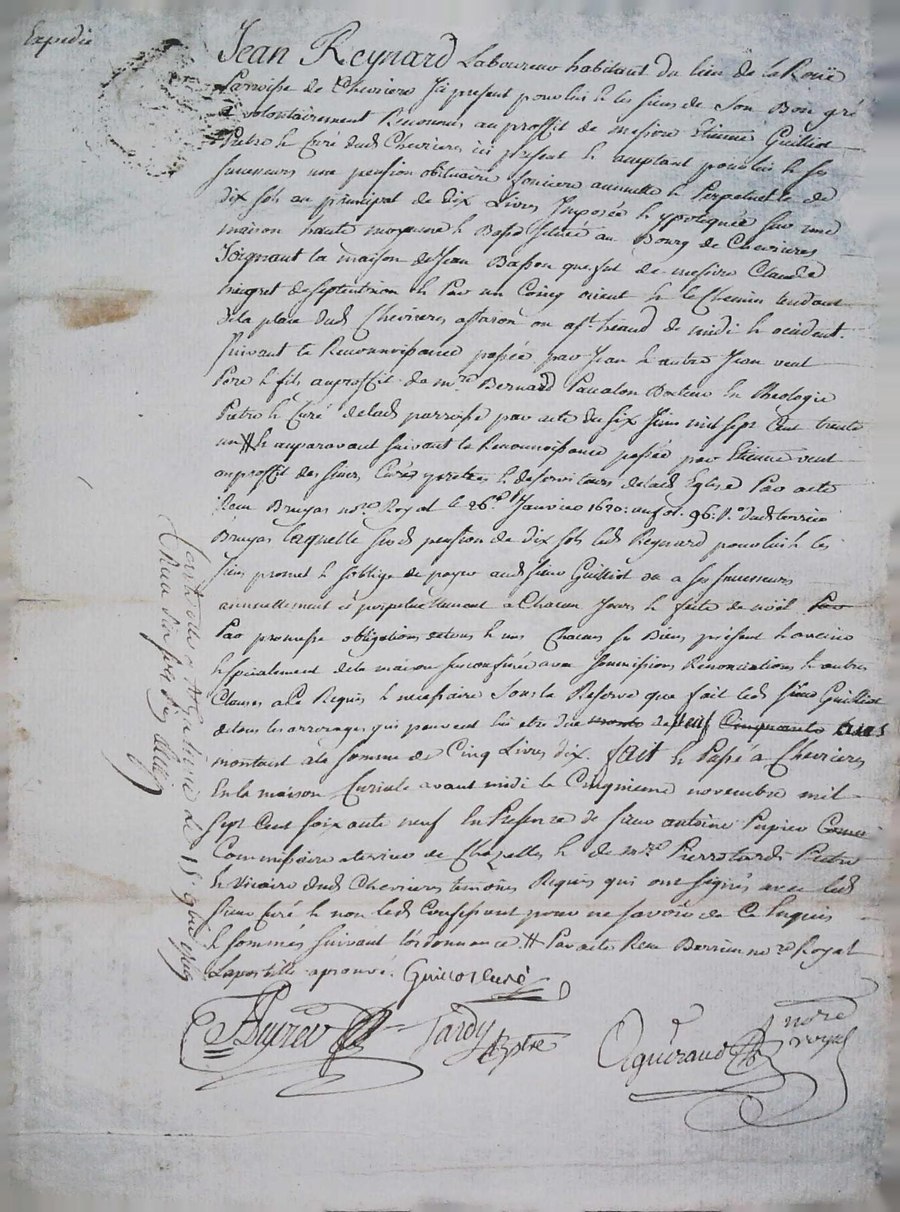 Expedié
Jean Reynard Laboureur habitant du lieu de la Roüe
Parroisse de Chevrieres Icy present pour luy & les siens de son Bon gré
a volontairement Reconnu au proffit de messire Etienne Guilliot
Pretre & Curé dud Chevrieres ici present & acceptant pour luy & ses
successeurs une pension obituaire fonciere annuelle & Perpetuelle de
dix sols au principal de dix Livres Imposée & ypotequée sur une
maison haute moyenne & Basse située au Bourg de Chevrieres
Joignant la maison de Jean Basson que fut de messire Claude
de septentrion & Par un Coing orient & le Chemin tendant
de la place dud Chevrieres a on a st heaud de midi & occident.
suivant la Reconnoissance passée par Jean & autre Jean
Pere & fils au proffit de mre Bernard Docteur En Theologie
Pretre & Curé de lad parroisse par acte du six Juin mil sept Cent trente
un # & auparavant suivant la Reconnoissance passée par Etienne
au proffit des sieurs Curés pretres & deserviteurs de lad Eglise Par acte
Recu Bruyas nore Royal le 26e Janvier 1620: au fol. 96. Vo dud terrier
Bruyas laquelle susd pension de dix sols led Reynard pour luy & les
siens promet & s'oblige de payer aud sieur Guilliot ou a ses successeurs
annuellement et perpetuellement a Chacun Jours & feste de noël Par
Par promesse obligations de tous & uns Chacuns ses Biens present & avenir
& specialement de la maison sus confinée avec soumissions Renonciations & autres
Clauses a Ce Requis & necessaire sous la Reserve que fait led sieur Guilliot
de tous les arrerages qui peuvent lui etre due de neuf Cinquante ans
montant a la somme de Cinq Livres dix. fait & Passé a Chevrieres
En la maison Curiale avant midi le Cinquieme novembre mil
sept Cent soix ante neuf En Presence de sieur antoine Pupier
Commissaire a terrier de Chazelles & de mre Pierre tardi Pretre
& Vicaire dud Chevrieres temoins Requis qui ont signés avec led
sieur Curé & non led Confessant pour ne savoir de Ce Enquis
& sommés suivant l'ordonnance. # Par acte Recu nore Royal
L'apostille aprouvé. Guilliot Curé
Pupier Tardy ptre Agueraud nore royal
Controllé a St Galmier le 15 9bre 1769
Recu